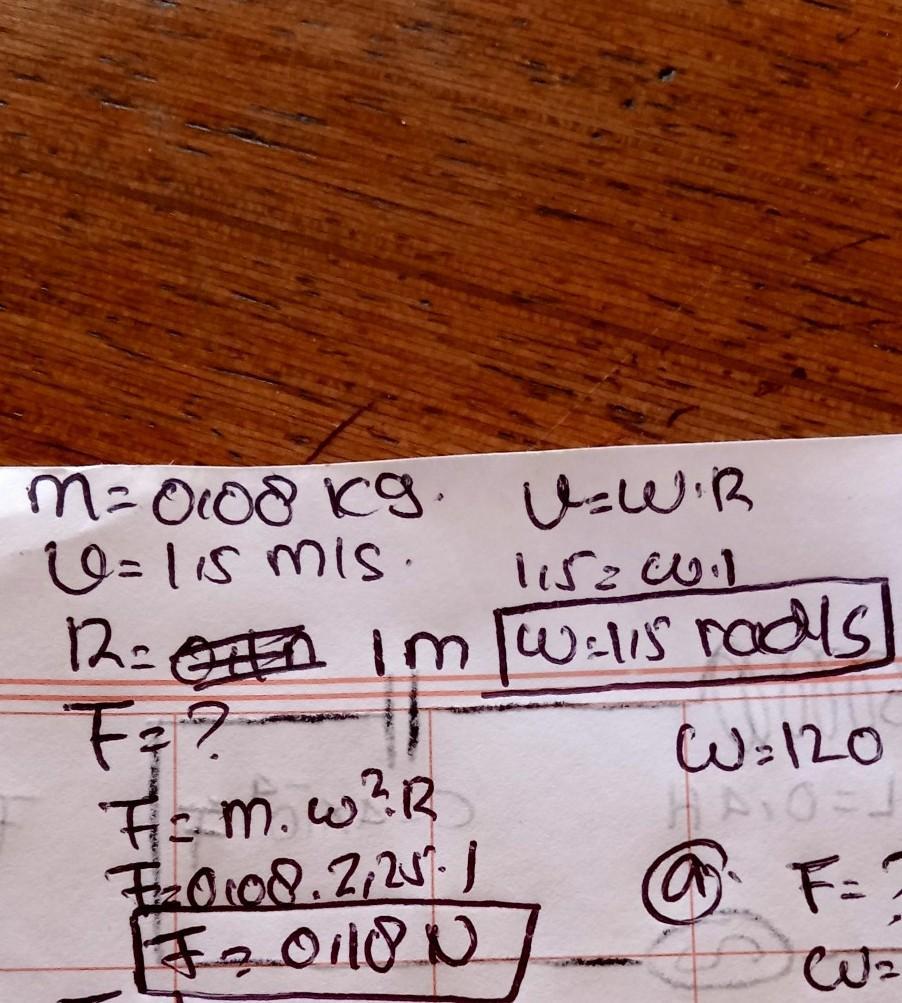 m=0,08 kg.
v=1,5 m/s.
R= 1m
F=?
F=m.ω².R
F=0,08.2,25.1
F=0,18 N
v=ω.R
1,5=ω.1
ω=1,5 rad/s
ω=120
a. F=?
ω=